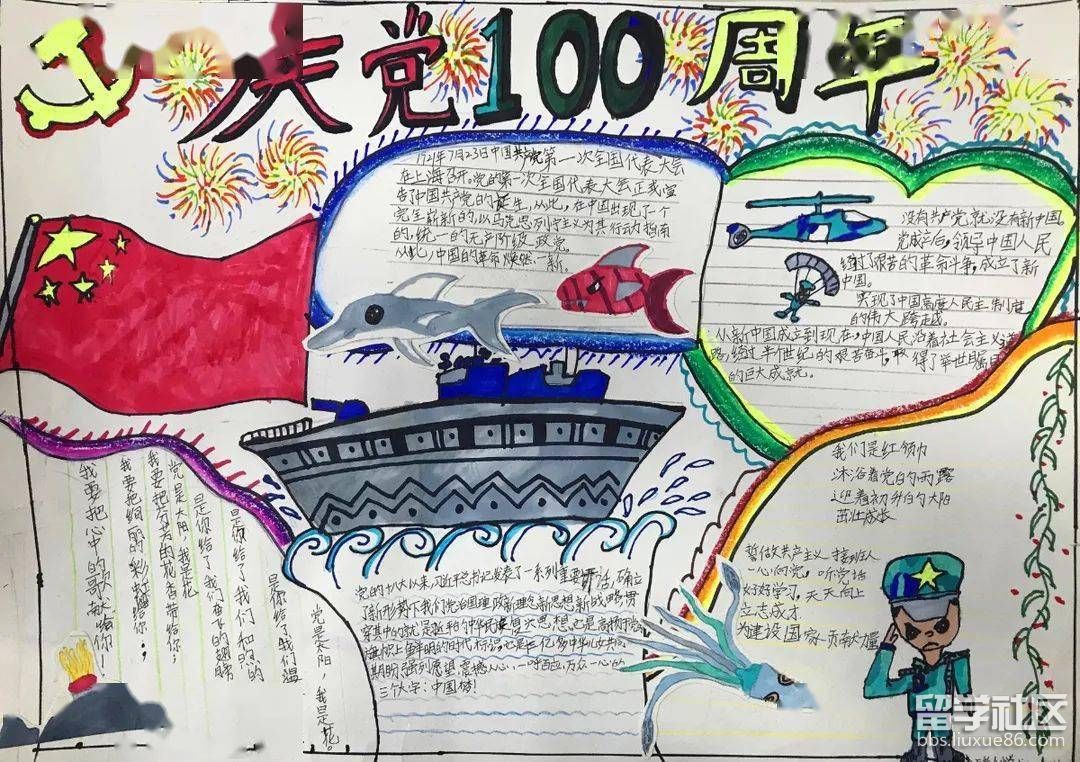 庆党100周年
1921年7月23日中国共产党第一次全国代表大会
在上海召开。党的第一次全国代表大会正式宣
告了中国共产党的诞生。从此，在中国出现了一个
完全崭新的，以马克思列宁主义为其行动指南
的，统一的无产阶级政党。
从此，中国的革命焕然一新。
没有共产党就没有新中国。
党成立后，领导中国人民
经过了艰苦的革命斗争，成立了新
中国。
实现了中国高度人民民主制度
的伟大跨越。
从新中国成立到现在，中国人民沿着社会主义道
路，经过半个世纪的艰苦奋斗，取得了举世瞩目
的巨大成就。
我们是红领巾
沐浴着党的雨露
迎着初升的太阳
茁壮成长
誓做共产主义接班人
一心向党，听党话
好好学习，天天向上
立志成才
为建设国家贡献力量
党的十八大以来习近平总书记发表了一系列重要讲话，确立
了新形势下我们党治国理政新理念新思想新战略贯
穿其中的就是
三个大字：中国梦！
党是太阳，我是花。
是你给了我们温
是你给了我们和煦的
是你给了我们奋飞的翅膀
党是太阳我是花
我要把芬芳的花香带给你；
我要把绚丽的彩虹赠给你；
我要把心中的歌献给你！
留学社区
bbs.liuxue86.com